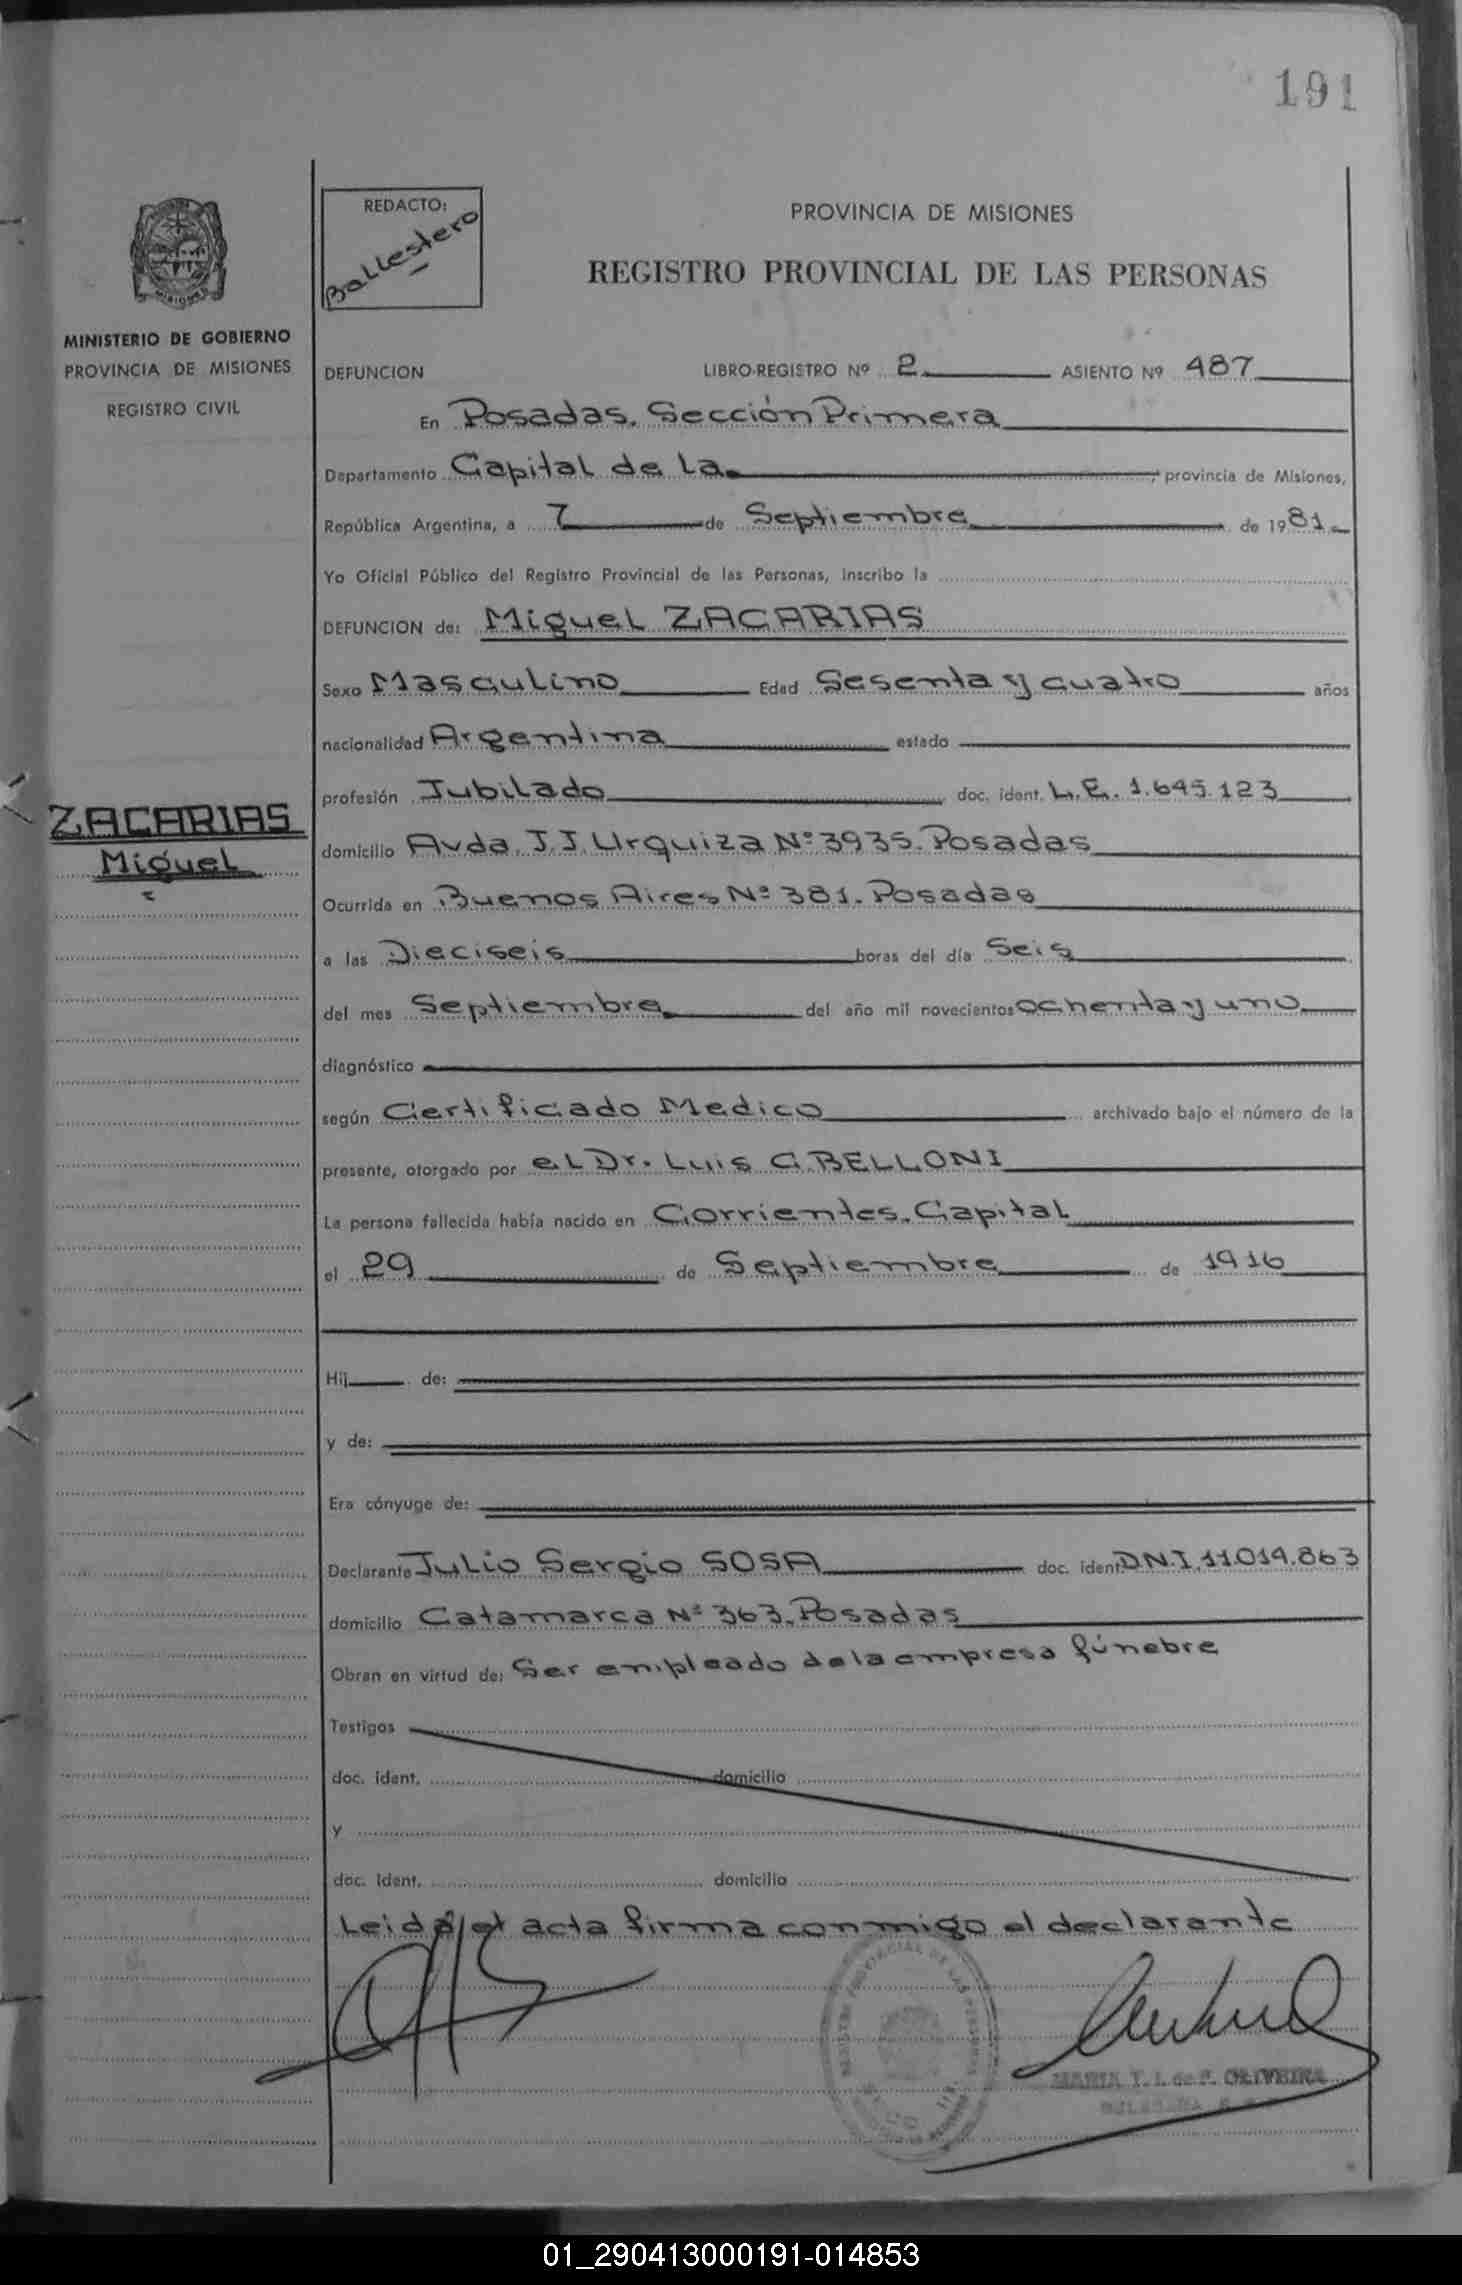 191
REDACTO:
Ballestero
PROVINCIA DE MISIONES
REGISTRO PROVINCIAL DE LAS PERSONAS
MISIONES
MINISTERIO DE GOBIERNO
PROVINCIA DE MISIONES
REGISTRO CIVIL
DEFUNCION LIBRO-REGISTRO Nº 2 ASIENTO Nº 487
En Posadas. Sección Primera
Departamento Capital de la provincia de Misiones,
República Argentina, a 7 de Septiembre de 1981
Yo Oficial Público del Registro Provincial de las Personas, inscribo la
DEFUNCION de: Miguel ZACARIAS
Sexo Masculino Edad Sesenta y cuatro años
nacionalidad Argentina estado
profesión Jubilado doc. ident. L.E. 1.645.123
ZACARIAS
Miguel
domicilio Avda. J.J. Urquiza Nº 3935. Posadas
Ocurrida en Buenos Aires Nº 381. Posadas
a las Dieciseis horas del día Seis
del mes Septiembre del año mil novecientos ochenta y uno
diagnóstico
según Certificado Medico archivado bajo el número de la
presente, otorgado por el Dr. Luis C. BELLONI
La persona fallecida había nacido en Corrientes. Capital
el 29 de Septiembre de 1916
Hij de:
y de:
Era cónyuge de:
Declarante Julio Sergio SOSA doc. ident. D.N.I. 11.014.863
domicilio Catamarca Nº 363. Posadas
Obran en virtud de: Ser empleado de la empresa fúnebre
Testigos
doc. ident. domicilio
y
doc. ident. domicilio
Leida el acta firma conmigo el declarante
MARIA T. I. de F. OLIVEIRA
01_290413000191-014853